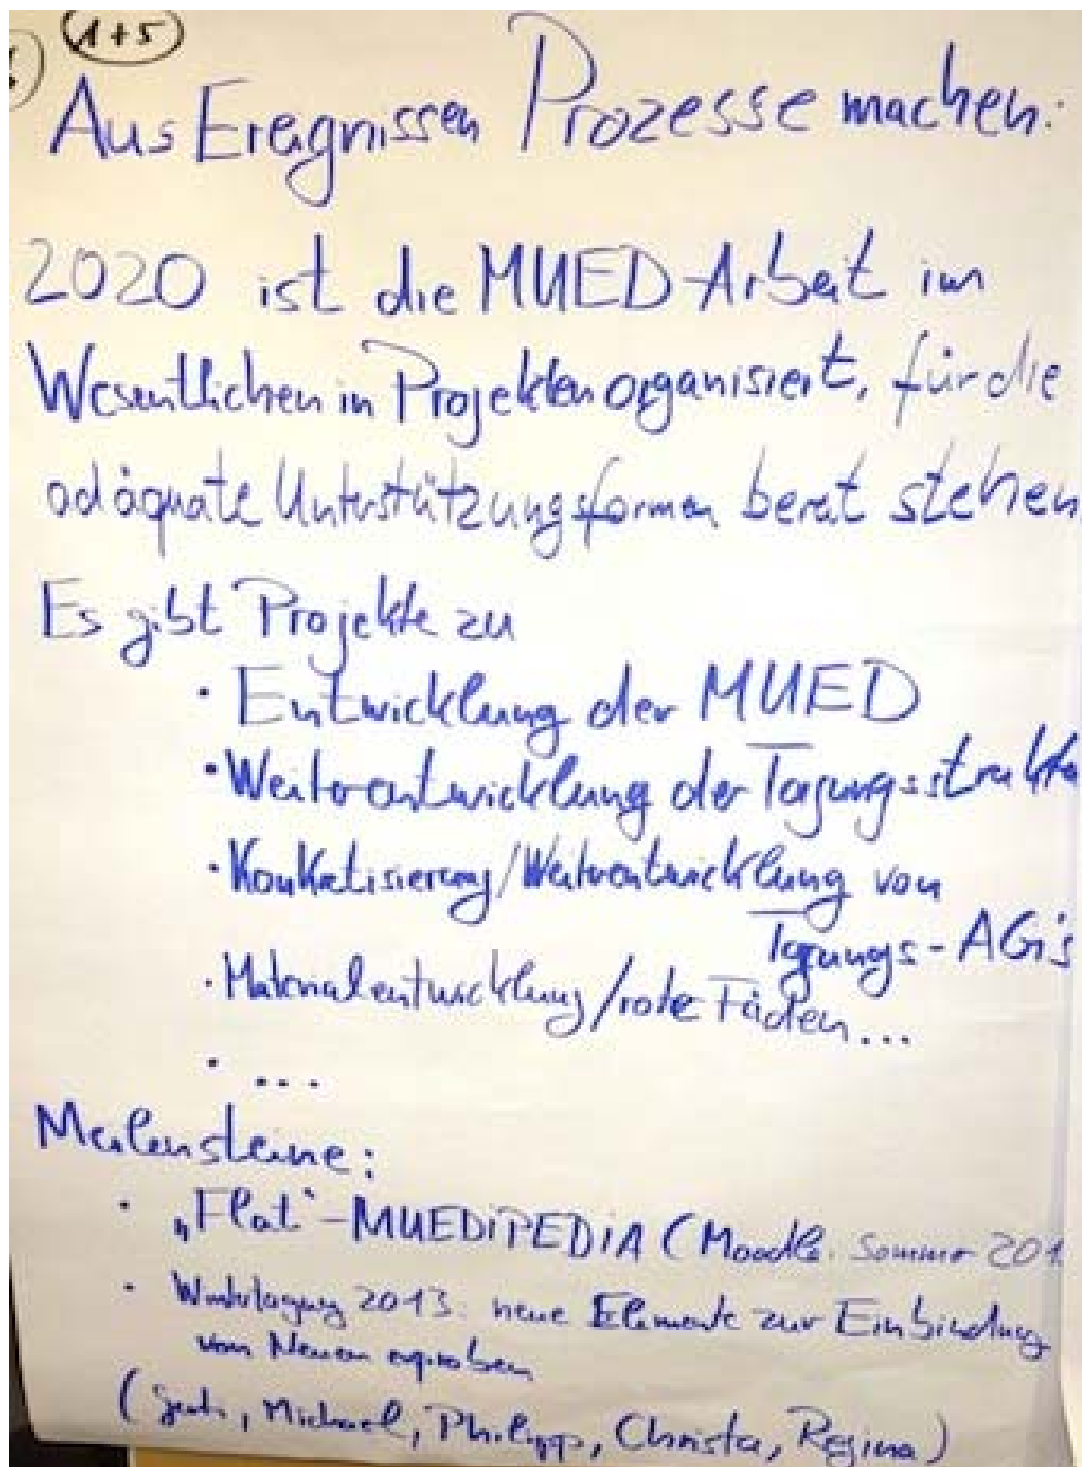 1+5
Aus Ereignissen Prozesse machen:
2020 ist die MUED-Arbeit im
Wesentlichen in Projekten organisiert, für die
adäquate Unterstützungsformen bereit stehen
Es gibt Projekte zu
· Entwicklung der MUED
· Weiterentwicklung der Tagungsstruktu
· Konkretisierung/Weiterentwicklung von
Tagungs-AG's
· Materialentwicklung/rote Fäden...
· ...
Meilensteine:
· „Flat“-MUEDiPEDiA (Moodle. Sommer 201
· Wintertagung 2013: neue Elemente zur Einbindung
von Neuen erproben
( , Michael, Philipp, Christa, Regina)